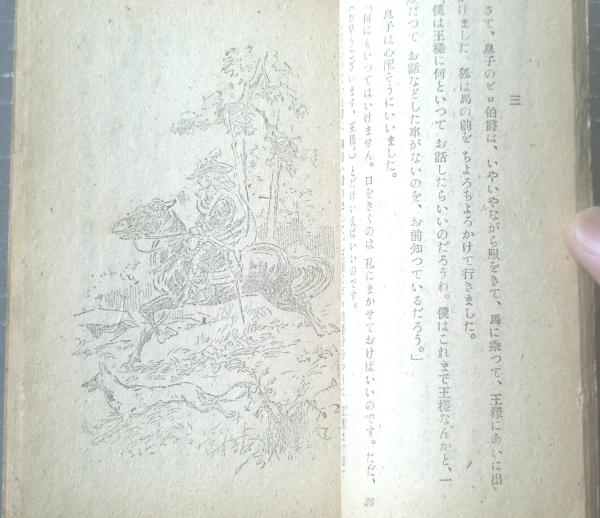 三
さて、息子のピロ伯爵は、いやいやながら服をきて、馬に乗つて、王様にあいに出
かけました。狐は馬の前を ちよろちよろかけて行きました。
「僕は王様に何といつて お話したらいいのだろうね。僕はこれまで王様なんかと、一
度だつて お話などした事がないのを、お前知つているだろう。」
息子は心配そうにいいました。
「何にもいつてはいけません。口をきくのは 私にまかせておけばいいのです。ただ、
『お早うございます、王様。』とだけいえばいいのです。
36